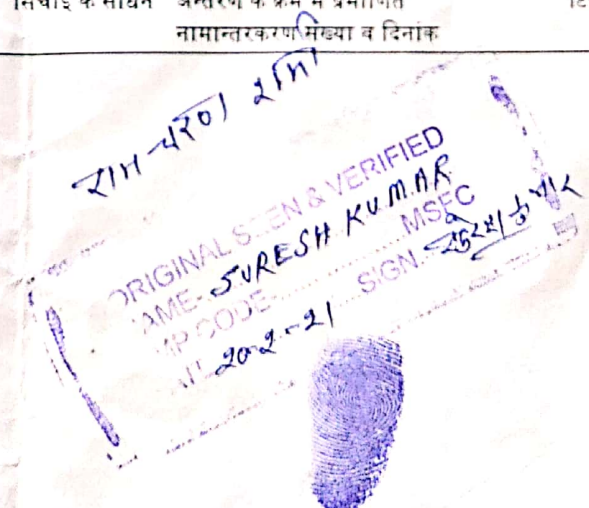 सिंचाई के साधन अन्तरण के क्रम में प्रमाणित
नामान्तरकरण संख्या व दिनांक
राम चरण
ORIGINAL SEEN & VERIFIED
NAME- SURESH KUMAR
EMP CODE- MSFC
20-2-21 SIGN- सुरेश कुमार